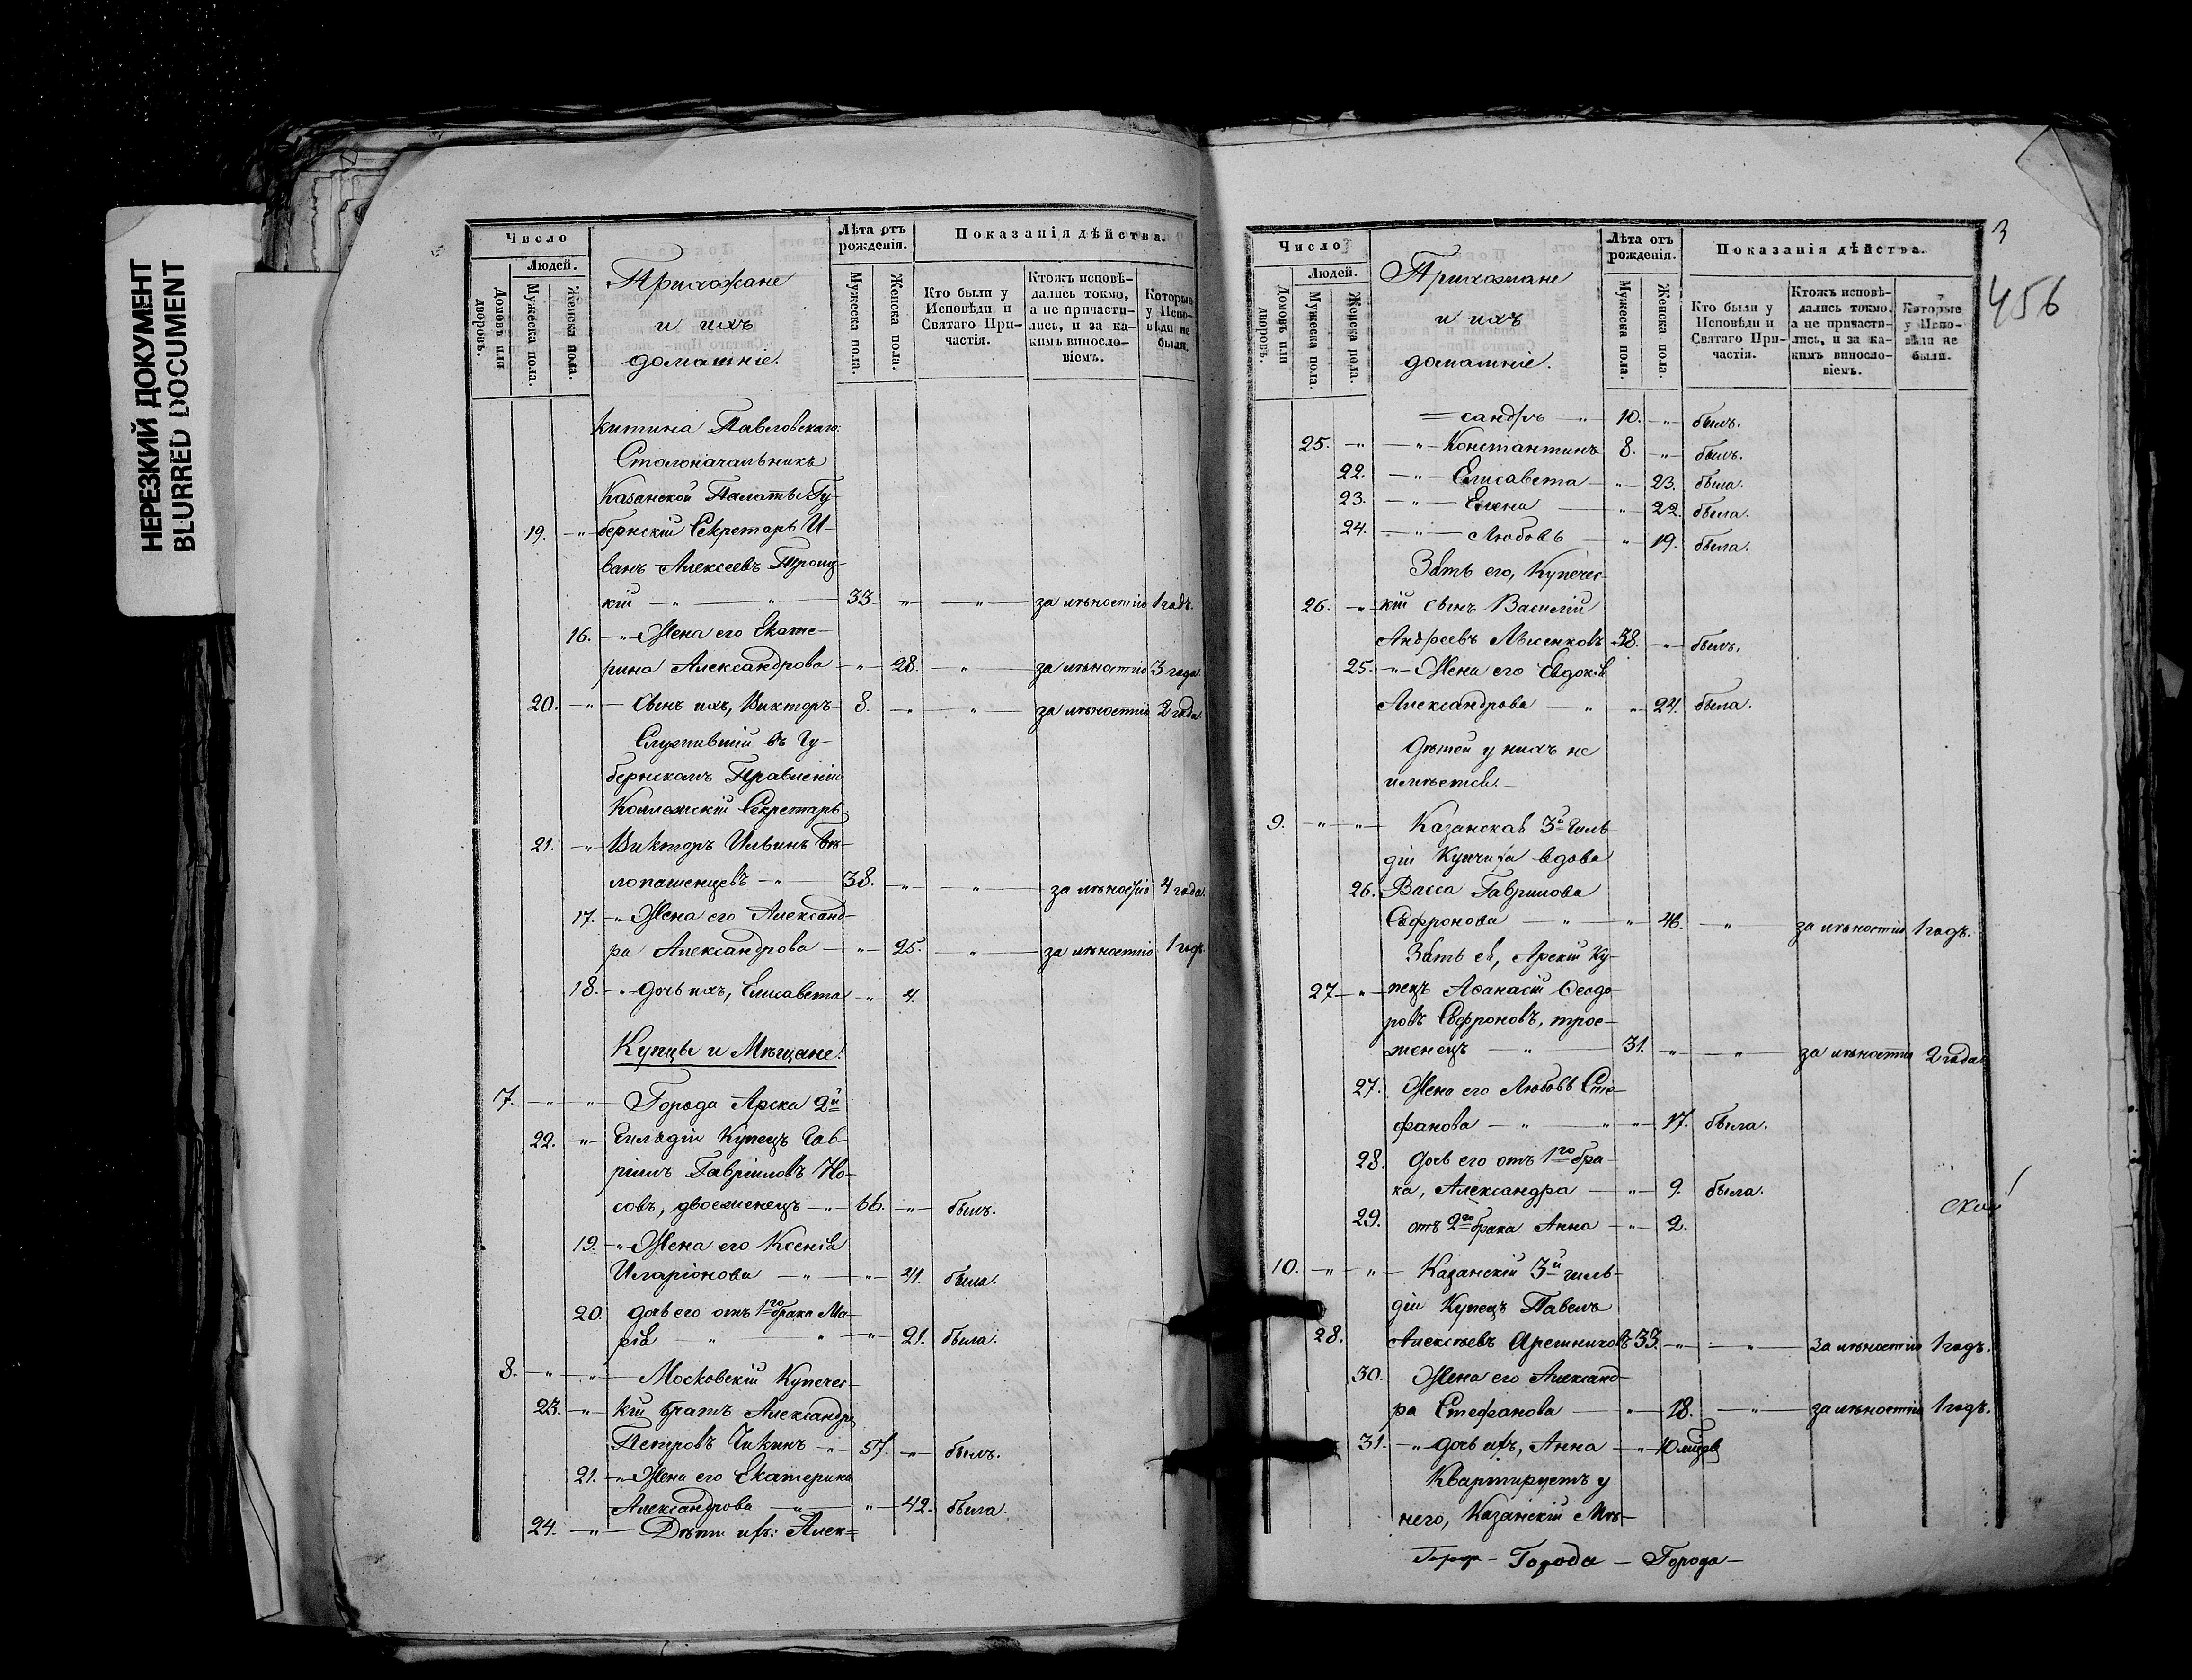 НЕРЕЗКИЙ ДОКУМЕНТ
BLURRED DOCUMENT
Число
Людей.
Домовъ или дворовъ.
Мужеска пола.
Женска пола.
Прихожане
и ихъ
домашніе.
Лѣта отъ рожденія.
Мужеска пола.
Женска пола.
Показанія дѣйства.
Кто были у Исповѣди и Святаго Причастія.
Ктожъ исповѣдались токмо, а не причастились, и за какимъ винословіемъ.
Которые у Исповѣди не были.
китина Павловскаго:
Столоначальникъ
Казанской Палаты Гу-
19. -„- бернскій Секретарь И-
ванъ Алексеевъ Троиц-
кій -„- -„- 33. -„- -„- за лѣностію 1 годъ.
16. -„- Жена его Екате-
рина Александрова -„- 28. -„- за лѣностію 3 года.
20. -„- Сынъ ихъ, Викторъ 8. -„- -„- за лѣностію 2 года.
Служившій въ Гу-
бернскомъ Правленіи
Коллежскій Секретарь
21. -„- Викторъ Ильинъ Бѣ-
лопашенцевъ -„- 38. -„- -„- за лѣностію 4 года.
17. -„- Жена его Александ-
ра Александрова -„- 25. -„- за лѣностію 1 годъ.
18. -„- Дочь ихъ, Елисавета -„- 4.
Купцы и Мѣщане:
7. -„- -„- Города Арска 2й
22. -„- Гильдіи Купецъ Гав-
ріилъ Гавріиловъ Но-
совъ, двоеженецъ -„- 66. -„- былъ.
19. -„- Жена его Ксенія
Иларіонова -„- -„- 41. была.
20. Дочь его отъ 1го брака Ма-
рія -„- -„- -„- 21. была.
8. -„- -„- Московскій Купечес-
23. -„- кій братъ Александръ
Петровъ Чикинъ -„- 57. -„- былъ.
21. -„- Жена его Екатерина
Александрова -„- -„- 42. была.
24. -„- Дѣти ихъ: Алек=
3
456
Число
Людей.
Домовъ или дворовъ.
Мужеска пола.
Женска пола.
Прихожане
и ихъ
домашніе.
Лѣта отъ рожденія.
Мужеска пола.
Женска пола.
Показанія дѣйства.
Кто были у Исповѣди и Святаго Причастія.
Ктожъ исповѣдались токмо, а не причастились, и за какимъ винословіемъ.
Которые у Исповѣди не были.
=сандръ -„- 10. -„- былъ.
25. -„- -„- Константинъ 8. -„- былъ.
22. -„- Елисавета -„- 23. была.
23. -„- Елена -„- 22. была.
24. -„- Любовь -„- 19. была.
Зять его, Купечес-
26. -„- кій сынъ Василій
Андреевъ Лысенковъ 38. -„- былъ.
25. -„- Жена его Евдокія
Александрова -„- -„- 24. была.
Дѣтей у нихъ не
имѣется.
9. -„- -„- Казанская 3й Гиль-
діи Купчиха вдова
26. Васса Гаврилова
Софронова -„- -„- 46. -„- за лѣностію 1 годъ.
Зять ея, Арскій Ку-
27 -„- пецъ Аѳанасій Ѳеодо-
ровъ Софроновъ, трое-
женецъ -„- 31. -„- -„- за лѣностію 2 года
27. Жена его Любовь Сте-
фанова -„- -„- -„- 17. была.
28. Дочь его отъ 1го бра-
ка, Александра -„- 9. была.
29. отъ 2го брака Анна -„- 2.
10. -„- -„- Казанскій 3й гиль-
діи Купецъ Павелъ
28. Алексѣевъ 33. -„- -„- за лѣностію 1 годъ.
30. Жена его Александ-
ра Стефанова -„- 18. -„- за лѣностію 1 годъ.
31. -„- Дочь ихъ, Анна -„- 10 мѣся
Квартируетъ у
него, Казанскій Мѣ-
Города - Города - Города -